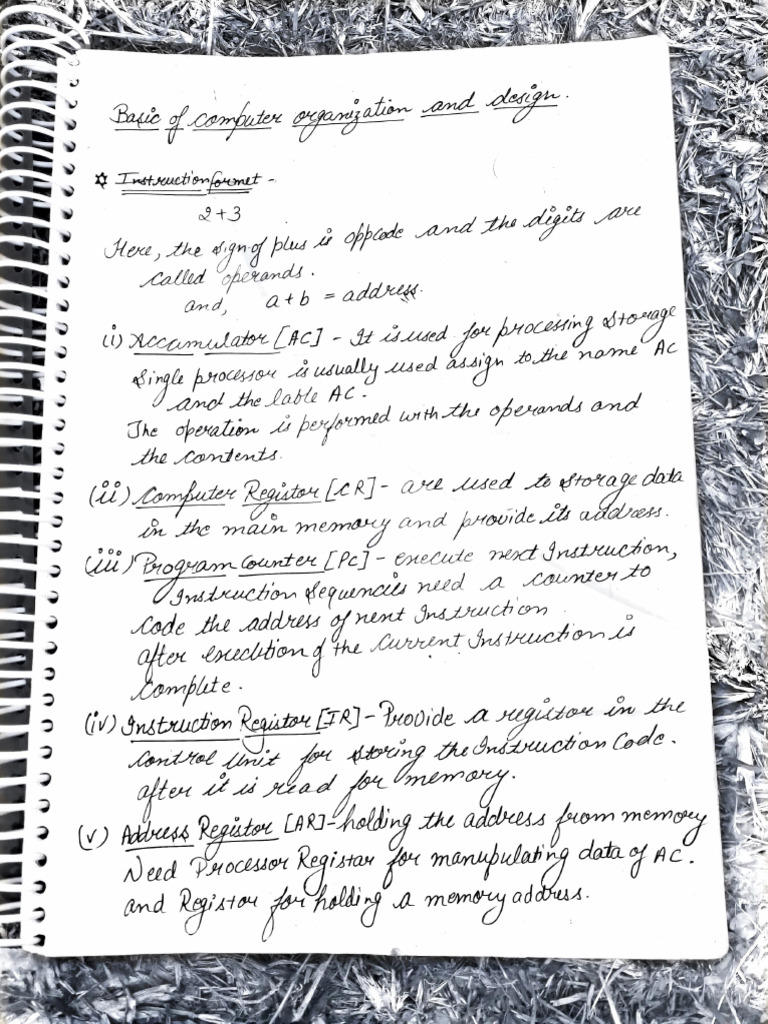 Basic of computer organization and design.
✡ Instruction formet -
2+3
Here, the sign of plus is oppcode and the digits are
called operands.
and, a+b = address.
(i) Accamulator [AC] - It is used for processing storage
single processor is usually used assign to the name AC
and the lable AC.
The operation is performed with the operands and
the contents.
(ii) Computer Registor [CR] - are used to storage data
in the main memory and provide its address.
(iii) Program Counter [PC] - execute next Instruction,
Instruction sequencies need a counter to
code the address of next Instruction
after execution of the current Instruction is
complete.
(iv) Instruction Registor [IR] - Provide a registor in the
control unit for storing the Instruction Code.
after it is read for memory.
(v) Address Registor [AR] - holding the address from memory
Need Processor Registar for manupulating data of AC.
and Registor for holding a memory address.